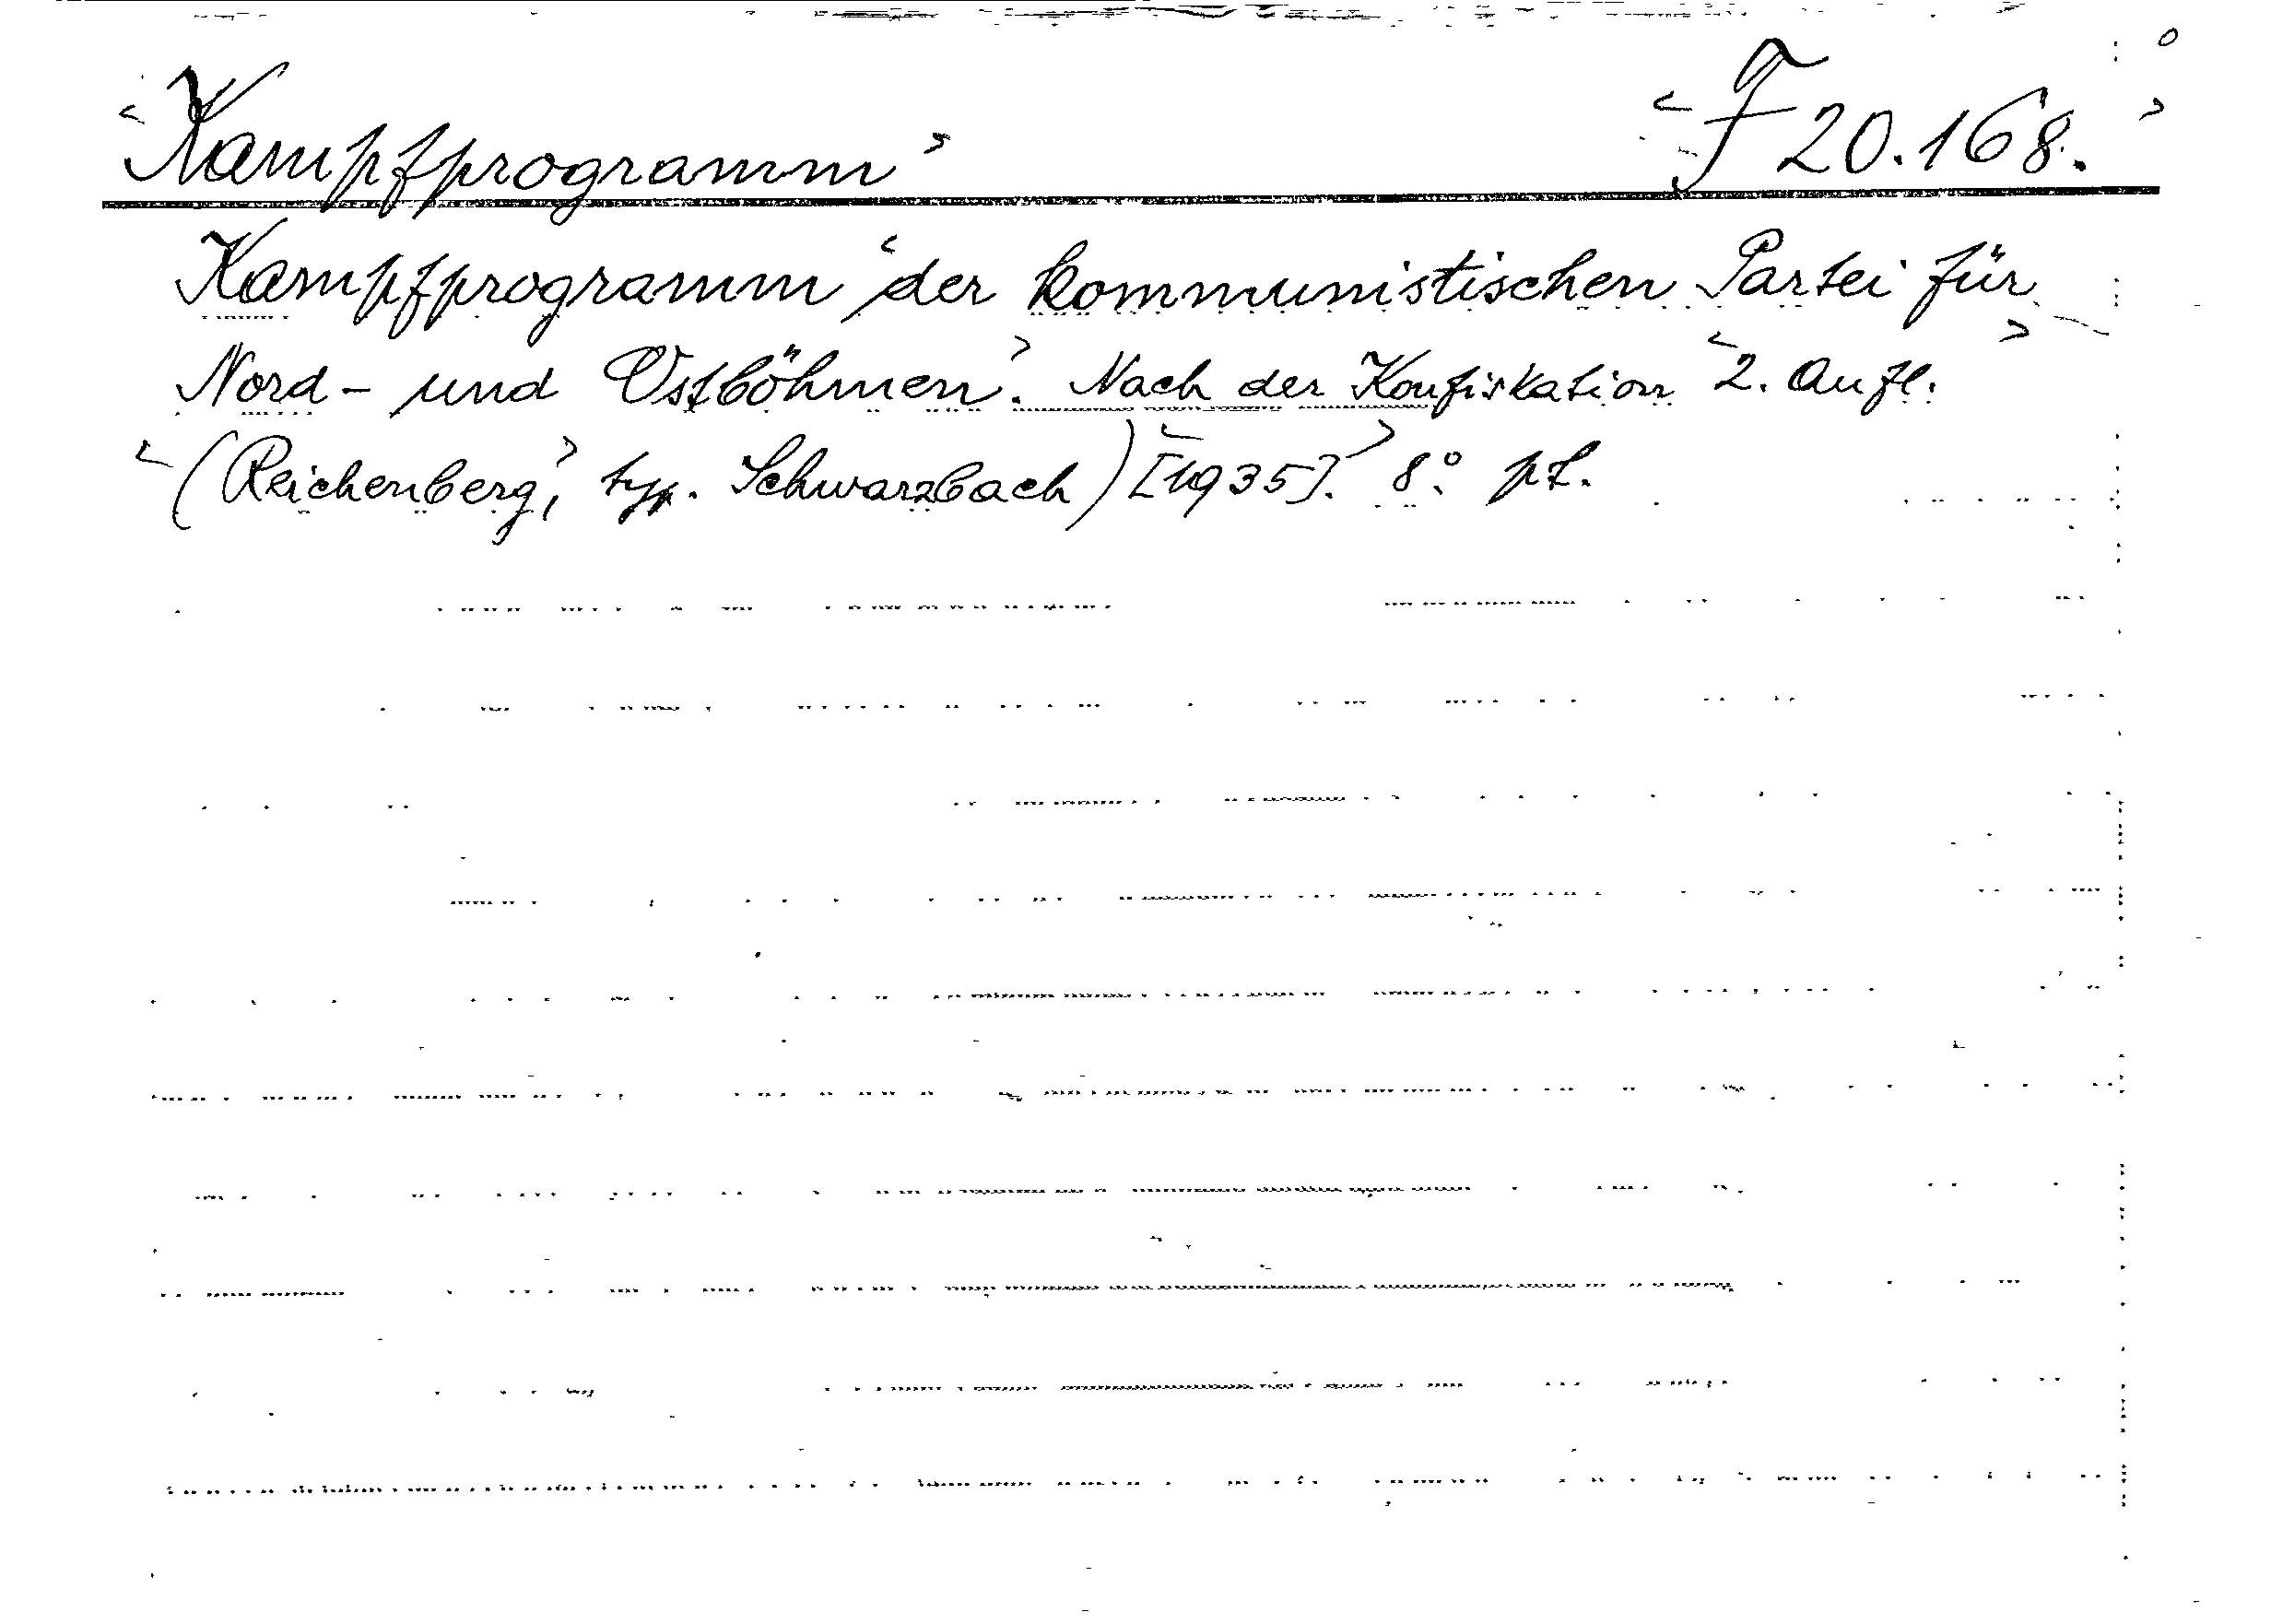 "Kampfprogramm" "F 20.168."
Kampfprogramm der kommunistischen Partei für
Nord- und Ostböhmen. Nach der Konfiskation 2. Aufl.
(Reichenberg, typ. Schwarzbach) [1935]. 8° pf.